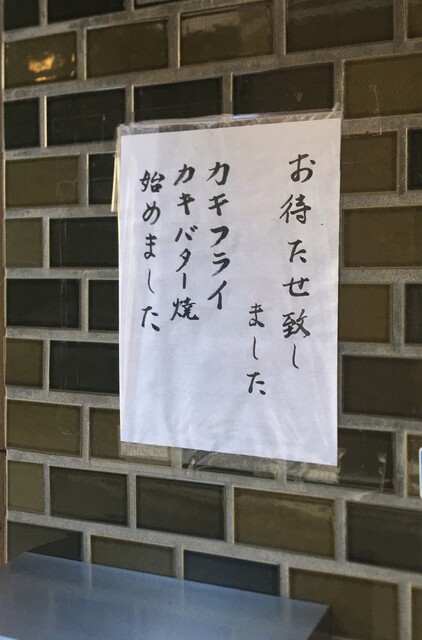 お待たせ致し
ました
カキフライ
カキバター焼
始めました